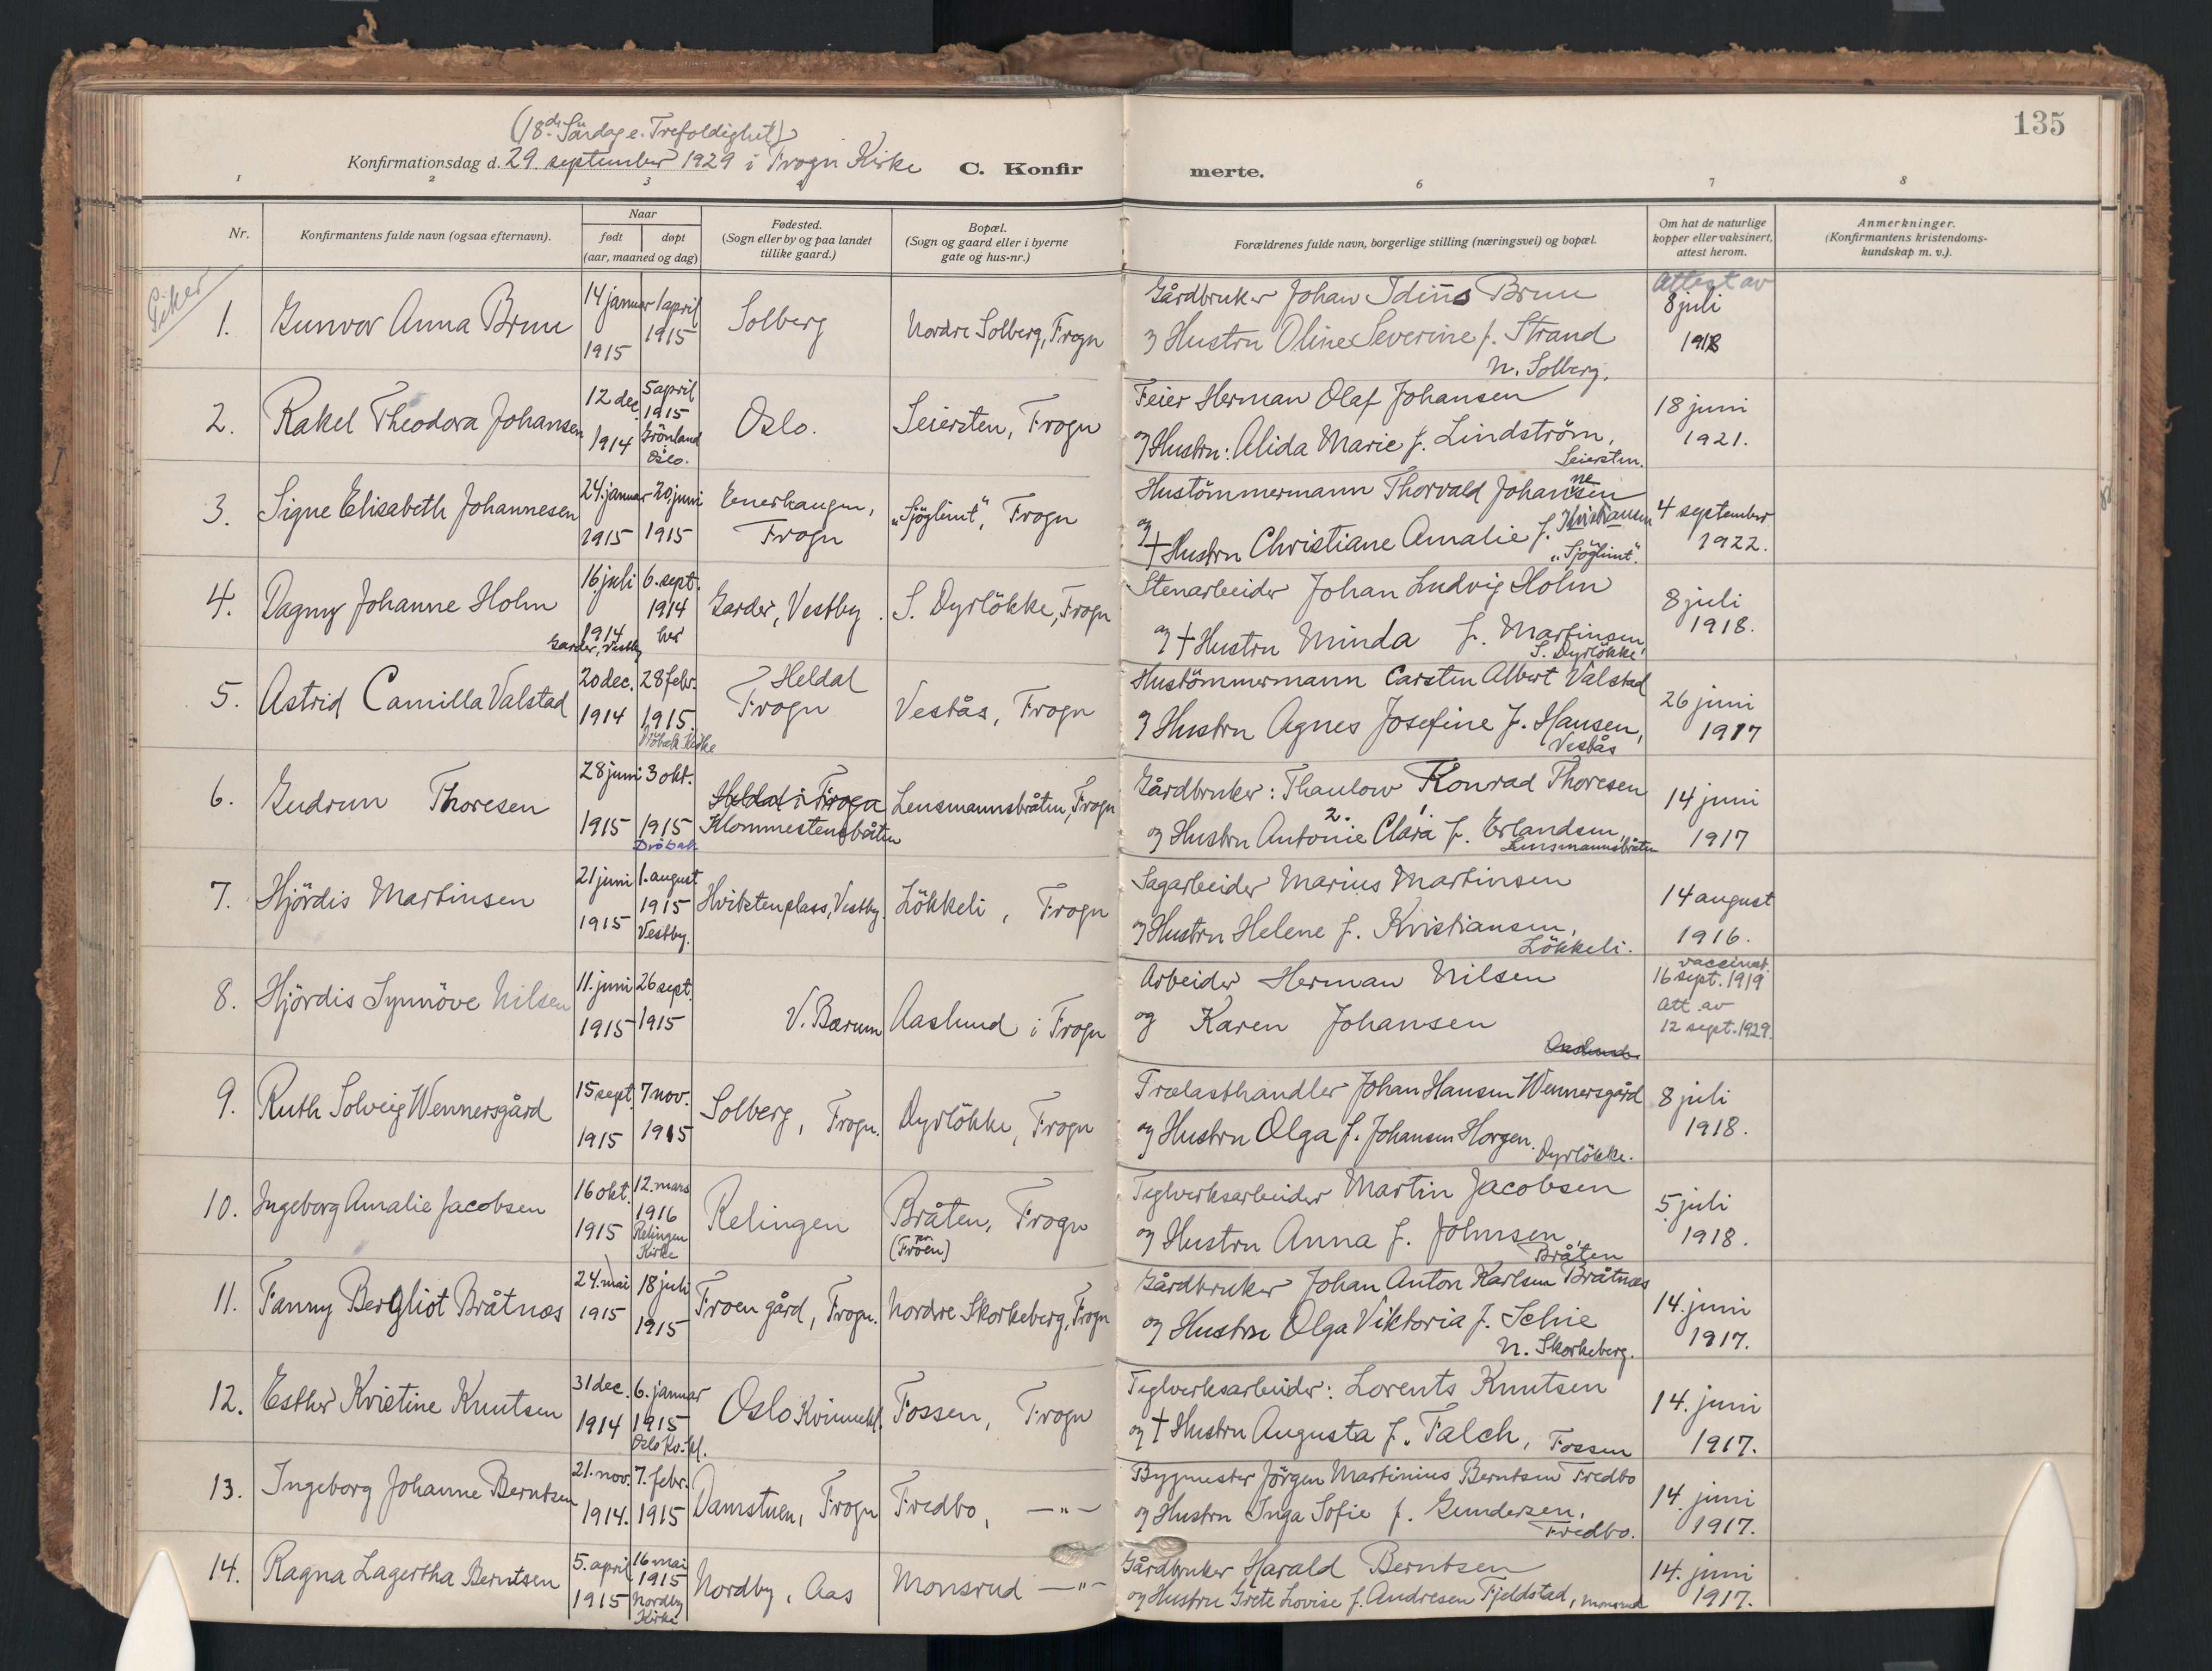 135
(18de Søndag e. Trefoldighet)
Konfirmationsdag d. 29. september 1929 i Frogn Kirke C. Konfirmerte.
1 2 3 4 6 7 8
Nr. Konfirmantens fulde navn (ogsaa efternavn). Naar født døpt (aar, maaned og dag) Fødested. (Sogn eller by og paa landet tillike gaard.) Bopæl. (Sogn og gaard eller i byerne gate og hus-nr.) Forældrenes fulde navn, borgerlige stilling (næringsvei) og bopæl. Om hat de naturlige kopper eller vaksinert, attest herom. Anmerkninger. (Konfirmantens kristendoms-kundskap m. v.).
Piker
1. Gunvor Anna Brun 14 januar 1915 1 april 1915 Solberg Nordre Solberg, Frogn
Gårdbruker Johan Brun
og Hustru Oline Severine f. Strand
N. Solberg.
Attest av 8 juli 1918
2. Rakel Theodora Johansen 12 dec. 1914 5 april 1915 Grönland Oslo. Oslo. Seiersten, Frogn
Feier Herman Olaf Johansen
og Hustru: Alida Marie f. Lindström,
Seiersten.
18 juni 1921.
3. Signe Elisabeth Johannesen 24. januar 1915 20. juni 1915 Enerhaugen, Frogn "Sjöglimt", Frogn
Hustömmermann Thorvald Johannesen
og † Hustru Christiane Amalie f. Kristiansen
"Sjöglimt".
4 september 1922.
4. Dagny Johanne Holm 16 juli 1914 Garder, Vestby 6. sept. 1914 her Garder, Vestby. S. Dyrlökke, Frogn
Stenarbeider Johan Ludvig Holm
og † Hustru Minda f. Martinsen,
S. Dyrlökke
8 juli 1918.
5. Astrid Camilla Valstad 20 dec. 1914 28 febr. 1915. Dröbak Kirke Heldal Frogn Vestås, Frogn
Hustömmermann Carsten Albert Valstad
og Hustru Agnes Josefine f. Hansen,
Vestås
26 juni 1917
6. Gudrun Thoresen 28 juni 1915 3 okt. 1915 Dröbak Heldal i Frogn Klommestensbråten Lensmannsbråten, Frogn
Gårdbruker: Thaulow Konrad Thoresen
og Hustru Antonie 2. Clara 1. f. Erlandsen,
Lensmannsbråten
14 juni 1917
7. Hjördis Martinsen 21 juni 1915 1. august 1915 Vestby. Hvitstenplass, Vestby. Lökkeli, Frogn
Sagarbeider Marius Martinsen
og Hustru Helene f. Kristiansen,
Lökkeli.
14 august 1916.
8. Hjördis Synnöve Nilsen 11. juni 1915 26 sept. 1915 V. Bærum Aaslund i Frogn
Arbeider Herman Nilsen
og Karen Johansen
Aaslund.
vaccinat. 16 sept. 1919 Att. av 12 sept. 1929.
9. Ruth Solveig Wennersgård 15 sept. 1915 7 nov. 1915 Solberg, Frogn. Dyrlökke, Frogn
Trælasthandler Johan Hansen Wennersgård
og Hustru Olga f. Johansen Horgen.
Dyrlökke.
8 juli 1918.
10. Ingeborg Amalie Jacobsen 16 okt. 1915 12. mars 1916 Relingen Kirke Relingen Bråten, Frogn (Froen)
Teglverksarbeider Martin Jacobsen
og Hustru Anna f. Johnsen,
Bråten
5 juli 1918.
11. Fanny Bergliot Bråtnæs 24. mai 1915 18 juli 1915 Froen gård, Frogn. Nordre Skorkeberg, Frogn
Gårdbruker Johan Anton Karlsen Bråtnæs
og Hustru Olga Viktoria f. Schie
N. Skorkeberg.
14. juni 1917.
12. Esther Kristine Knutsen 31 dec. 1914 6. januar 1915 Oslo Kv.kl. Oslo Kvinnekl. Fossen, Frogn
Teglverksarbeider: Lorents Knutsen
og † Hustru Augusta f. Falch, Fossen
14. juni 1917.
13. Ingeborg Johanne Berntsen 21. nov. 1914. 7. febr. 1915 Damstuen, Frogn Fredbo, —"—
Bygmester Jörgen Martinius Berntsen Fredbo
og Hustru Inga Sofie f. Gundersen,
Fredbo.
14. juni 1917.
14. Ragna Lagertha Berntsen 5. april 1915 16 mai 1915 Nordby Kirke Nordby, Aas Monsrud —"—
Gårdbruker Harald Berntsen
og Hustru Grete Lovise f. Andresen Fjeldstad, Monsrud
14. juni 1917.